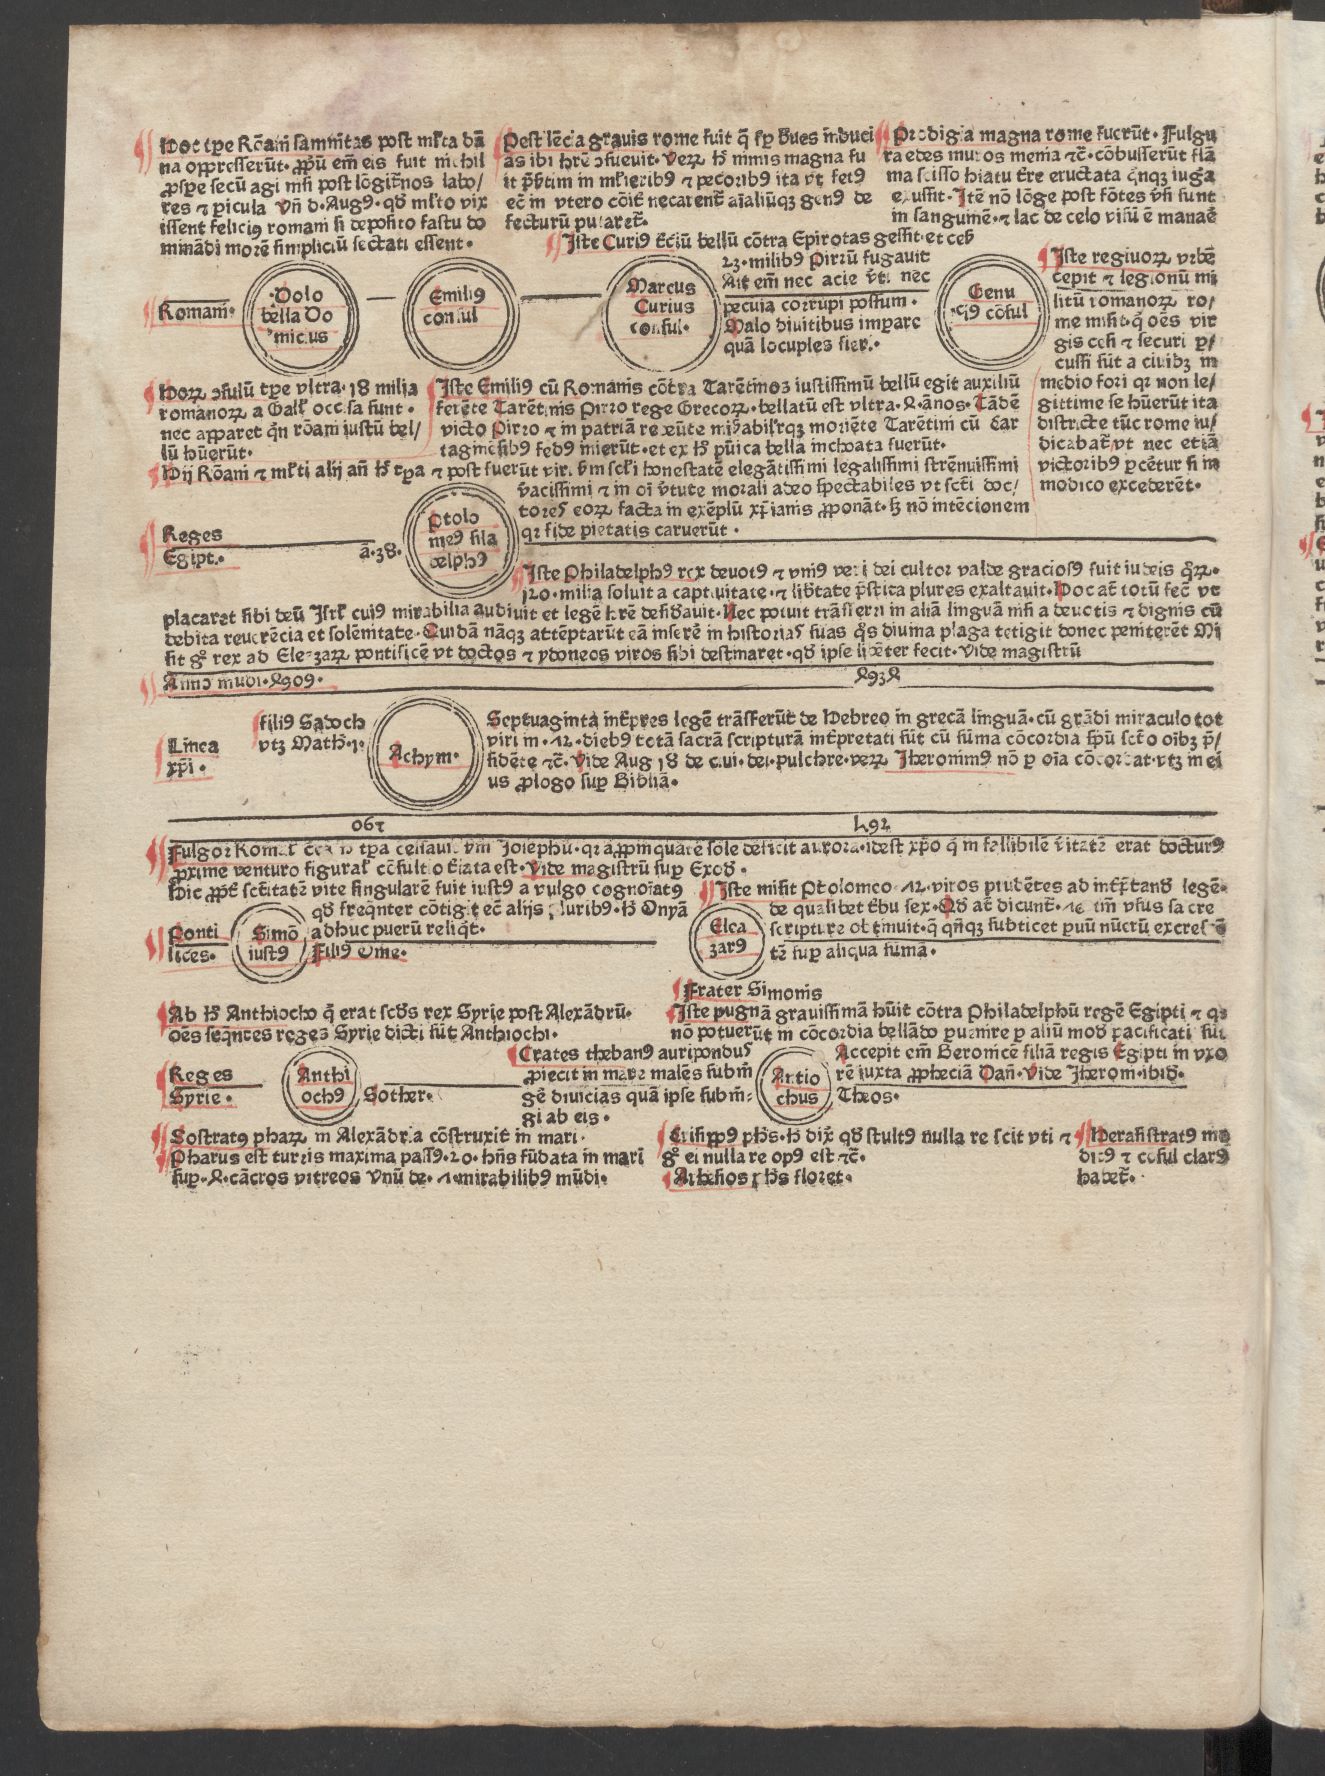 Hoc tpe Rōani samnitas post ml'ta dā
na oppresserūt. ꝓpʼū em̄ eis fuit nichil
ꝓspe secū agi nisi post lōgitnos labo/
res ⁊ picula Vn̄ d. Augꝰ. qd' ml'to vix
issent feliciꝰ romani si deposito fastu do
minādi morē simpliciū sectati essent.
Pestilēcia grauis rome fuit q̄ ꝑ dues induci
as ibi hrē ↄsueuit. Veꝝ h' nimis magna fu
it p̄btim in ml'ieribꝰ ⁊ pecoribꝰ ita vt fetꝰ
ec̄ in vtero cōit necarent̄ aīaliūqꝫ genꝰ de
fecturū putaret̄.
Prodigia magna rome fuerūt. Fulgu
ra edes muros menia ⁊c̄. cōbusserūt flā
ma scisso hiatu tʼre eructata qʼnqꝫ iuga
exussit. Itē nō lōge post fōtes vʼsi sunt
in sanguinē. ⁊ lac de celo visū ē manaē
Iste Curiꝰ tʼciū bellū cōtra Epirotas gessit et ceß
23. milibꝰ Pirrū fugauit
Ait em̄ nec acie vʼti nec
pecuia corrupi possum.
Malo diuitibus imparc
quā locuples fier..
Iste regiuoꝝ vrbē
cepit ⁊ legionū mi
litū romanoꝝ ro/
me misit. q̄ oēs vir
gis cesi ⁊ securi p/
cussi sūt a ciuibꝫ in
medio fori qr non le/
gittime se hūerūt ita
districte tūc rome iu/
dicabat̄ vt nec etiā
victoribꝰ pcētur si in
modico excederēt.
Romani.
Dolo
bella Do
micius
Emiliꝰ
consul
Marcus
Curius
consul.
Genu
ciꝰ cōsul
Hoꝝ ↄsulū tpe vltra. 18 milia
romanoꝝ a Gall' occisa sunt.
nec apparet qʼn rōani iustū bel/
lū hūerūt.
Iste Emiliꝰ cū Romanis cōtra Tarētinos iustissimū bellū egit auxiliū
ferēte Tarētinis Pirro rege Grecoꝝ. bellatū est vltra. 4. ānos. Tādē
victo Pirro ⁊ in patriā redeūte mirabilʼrqꝫ moriēte Tarētini cū Car
taginēsibꝰ fedꝰ inierūt. et ex h' pūica bella inchoata fuerūt.
Hij Rōani ⁊ ml'ti alij an̄ h' tpa ⁊ post fuerūt viri bm̄ scl'i honestatē elegātissimi legalissimi strēnuissimi
vʼacissimi ⁊ in oī vʼtute morali adeo spectabiles vt scti doc/
tores eoꝝ facta in exēplū xp̄ianis ꝓponāt. sꝫ nō intēcionem
qr fide pietatis caruerūt.
Reges
Egipt.
ā. 38.
Ptolo
meꝰ fila
delphꝰ
Iste Philadelphꝰ rex deuotꝰ ⁊ vniꝰ veri dei cultor valde graciosꝰ fuit iudeis qʼꝝ.
120. milia soluit a captiuitate. ⁊ libʼtate pʼstita plures exaltauit. Hoc at̄ totū fec̄ vt
placaret sibi deū Isrl' cuiꝰ mirabilia audiuit et legē hrē desid'auit. Nec potuit trāsferri in aliā linguā nisi a deuotis ⁊ dignis cū
debita reuerēcia et solēnitate. Quidā nāqꝫ attēptarūt eā inserē in historias suas qʼs diuina plaga tetigit donec peniterēt Mi
sit gʼ rex ad Elezaꝝ pontificē vt doctos ⁊ ydoneos viros sibi destinaret. qd' ipse libēter fecit. Vide magistrū
Anno mudi. 4909.
4934
Linea
xp̄i.
filiꝰ Sadoch
vtꝫ Math'. 1.
Achym.
Septuaginta intʼpres legē trāsferūt de Hebreo in grecā linguā. cū grādi miraculo tot
viri in. 72. diebꝰ totā sacrā scripturā intʼpretati sūt cū sūma cōcordia spū scto oibꝫ p̄/
sidēte ⁊c̄. Vide Aug 18 de c.ui. dei. pulchre. veꝝ Iheronimꝰ nō ꝑ oīa cōcordat. vtꝫ in ei
us ꝓlogo sup Bibliā.
Fulgor
ꝓxime venturo figural' cōsultio tʼiata est. Vide magistrū sup Exod'.
Hic ꝓpt̄ sctitatē vite singularē fuit iustꝰ a vulgo cognoīatꝰ
qd' freqʼnter cōtigit ec̄ alijs pluribꝰ. h' Onyā
adhuc puerū reliqʼt.
Filiꝰ Onie.
Ponti
fices.
Simō
iustꝰ
Iste misit Ptolomeo. 72. viros prudētes ad intʼp̄tand' legē.
de qualibet tʼbu sex. Qd' at̄ dicunt̄. 70 tm̄ vsus sacre
scripture obtinuit. q̄ qʼnqꝫ subticet puū nūerū excres
tē sup aliqua sūmā.
Elea
zarꝰ
Frater Simonis
Ab h' Anthiocho q̄ erat scd's rex Syrie post Alexādrū.
oēs seqʼntes reges Syrie dicti sūt Anthiochi.
Iste pugnā grauissimā hūit cōtra Philadelphū regē Egipti ⁊ qr
nō potuerūt in cōcordia bellādo puenire ꝑ aliū mod' pacificati sūt
Reges
Syrie.
Anthi
ochꝰ
Sother.
Crates thebanꝰ auripondus
ꝓiecit in mare malēs subm̄
gē diuicias quā ipse subm̄=
gi ab eis.
Antio
chus
Accepit em̄ Beronicē filiā regis Egipti in vxo
rē iuxta ꝓpheciā Dan̄. Vide Iherom. ibid'.
Theos.
Sostratꝰ phaꝝ in Alexādria cōstruxit in mari.
Pharus est turris maxima passꝰ. 20. hn̄s fūdata in mari
sup. 4. cācros vitreos Vnū de. 7. mirabilibꝰ mūdi.
Crisippꝰ ph's. h' dix' qd' stultꝰ nulla re scit vti ⁊
gʼ ei nulla re opꝰ est ⁊c̄.
Arthesios ph's floret.
Herasistratꝰ me
dicꝰ ⁊ cōsul clarꝰ
habet̄.